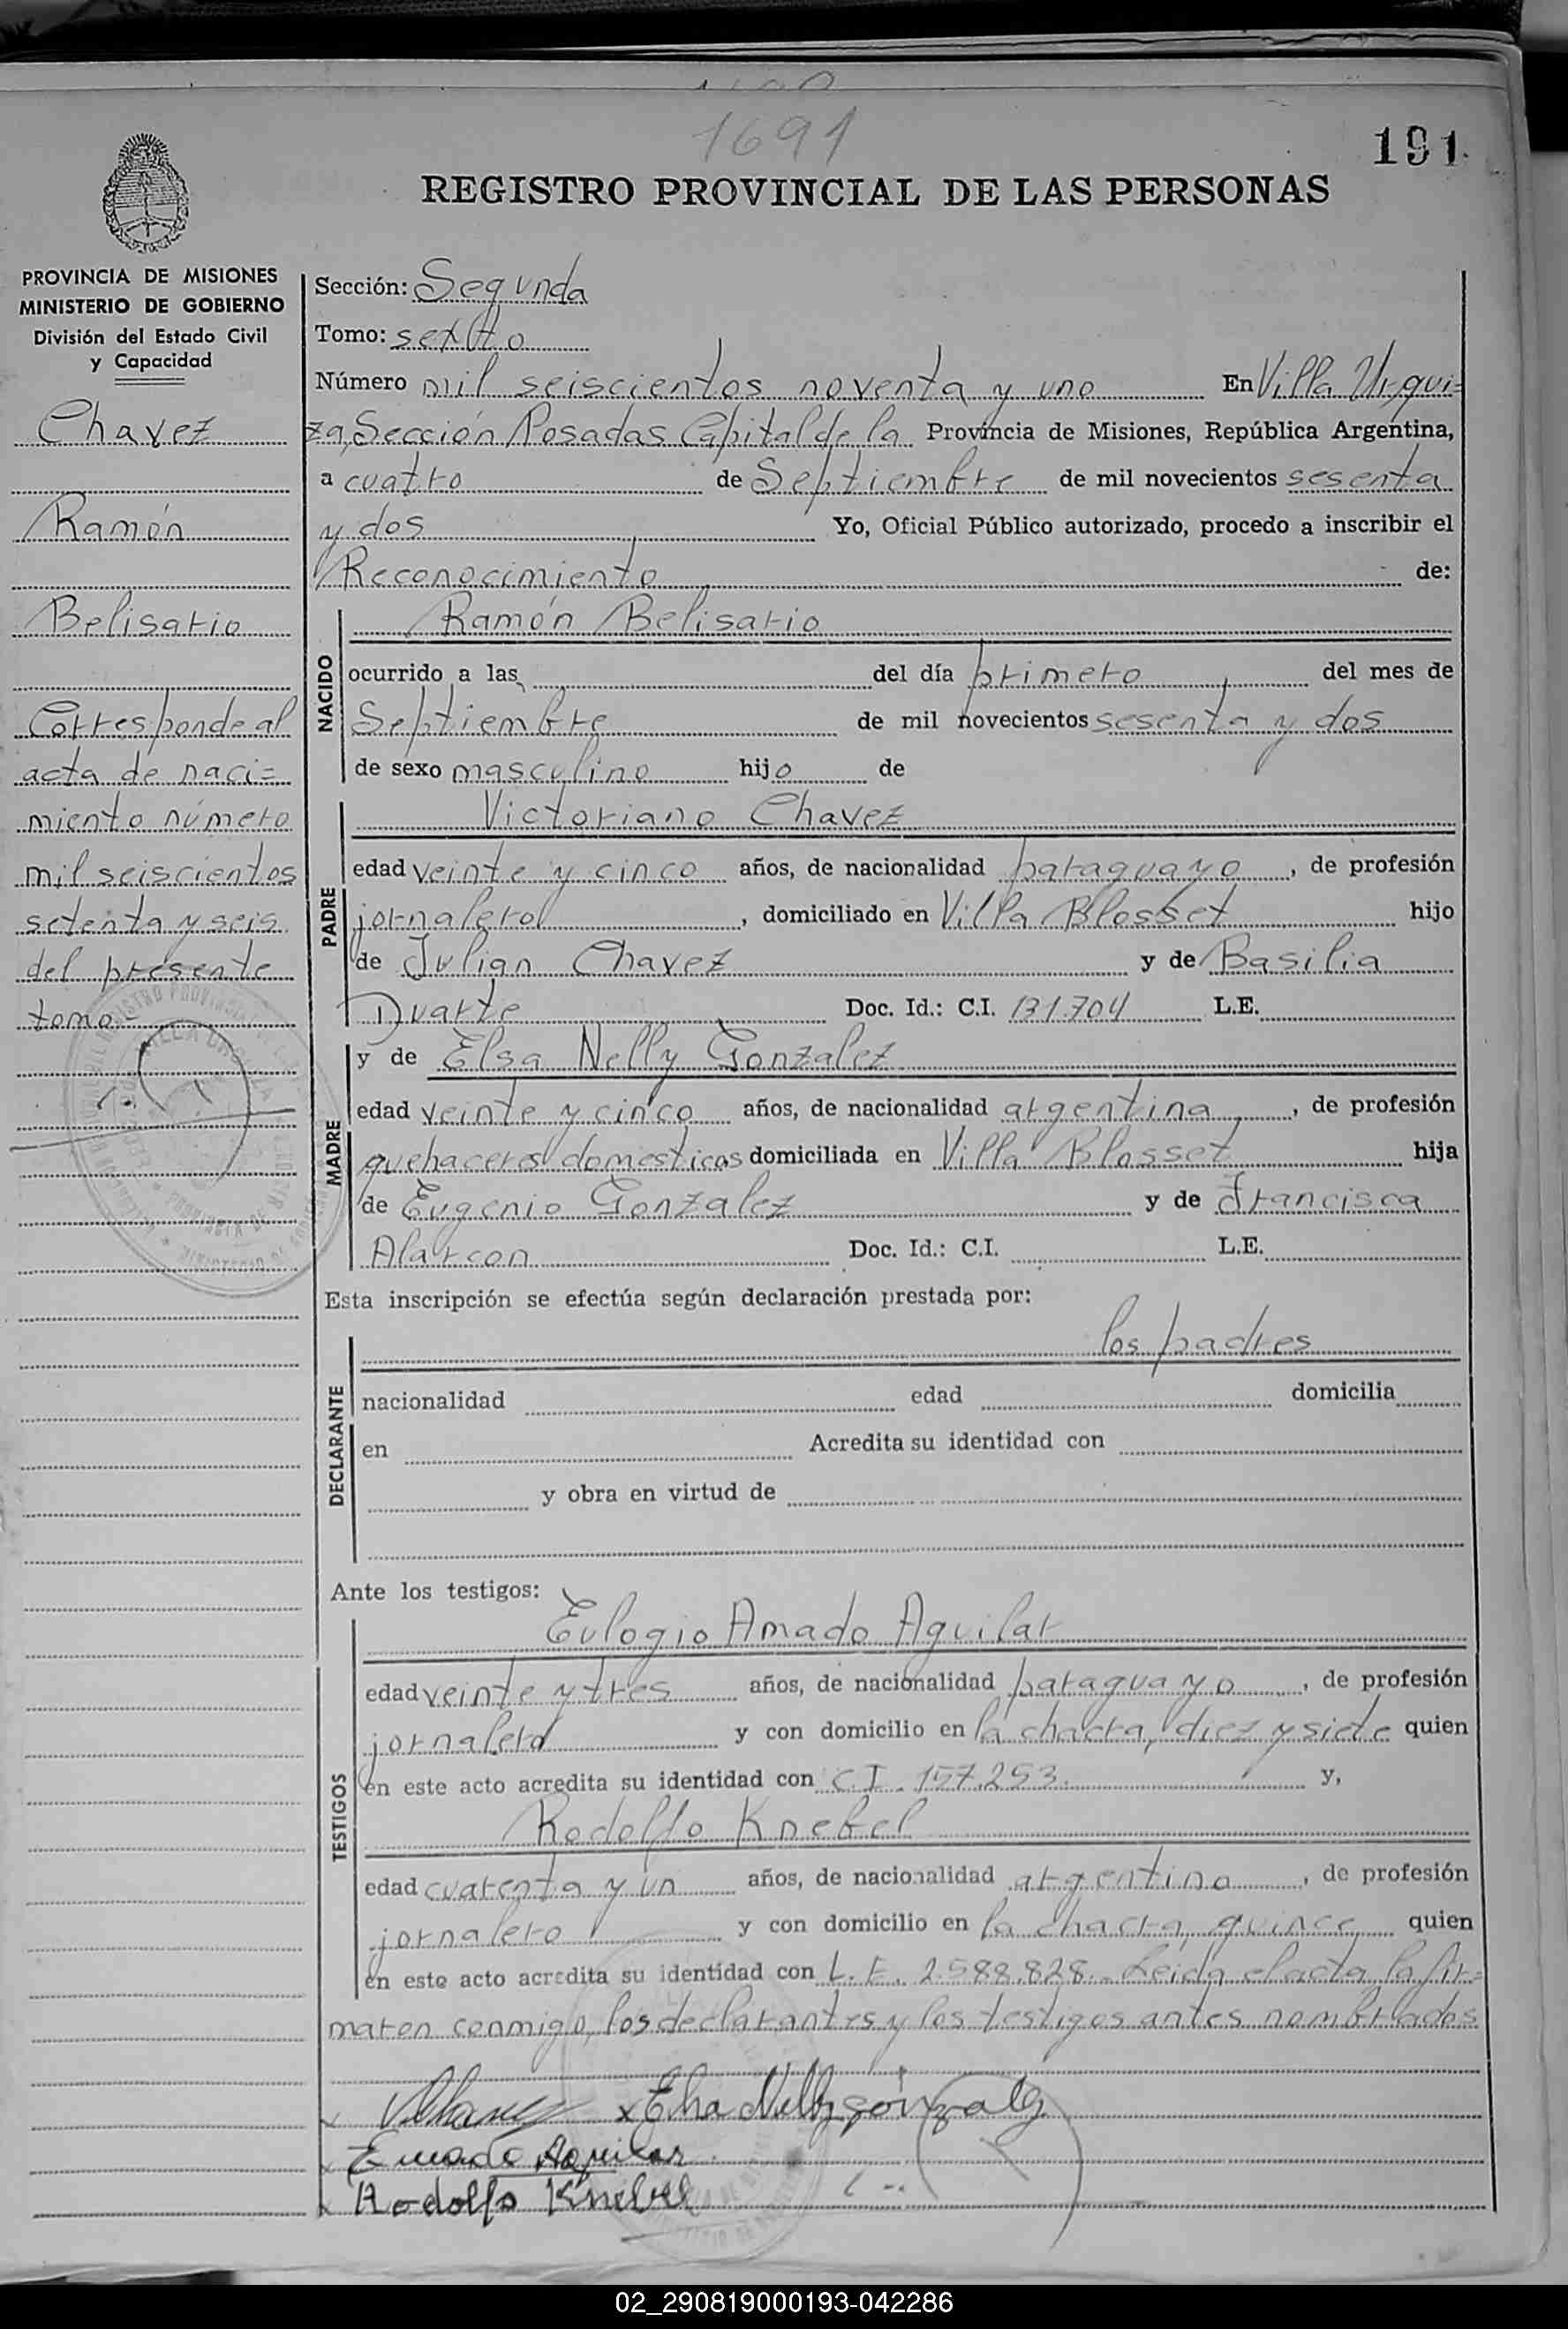 1691
191
REGISTRO PROVINCIAL DE LAS PERSONAS
PROVINCIA DE MISIONES
MINISTERIO DE GOBIERNO
División del Estado Civil
y Capacidad
Chavez
Ramón
Belisario
Corresponde al
acta de naci=
miento número
mil seiscientos
setenta y seis
del presente
tomo-
Sección: Segunda
Tomo: sexto
Número mil seiscientos noventa y uno En Villa Urqui=
za, Sección Posadas Capital de la Provincia de Misiones, República Argentina,
a cuatro de Septiembre de mil novecientos sesenta
y dos Yo, Oficial Público autorizado, procedo a inscribir el
Reconocimiento de:
NACIDO
Ramón Belisario
ocurrido a las del día primero del mes de
Septiembre de mil novecientos sesenta y dos
de sexo masculino hijo de
PADRE
Victoriano Chavez
edad veinte y cinco años, de nacionalidad paraguayo, de profesión
jornalero, domiciliado en Villa Blosset hijo
de Julian Chavez y de Basilia
Duarte Doc. Id.: C.I. 131.704 L.E.
MADRE
y de Elsa Nelly Gonzalez
edad veinte y cinco años, de nacionalidad argentina, de profesión
quehaceres domesticos domiciliada en Villa Blosset hija
de Eugenio Gonzalez y de Francisca
Alarcon Doc. Id.: C.I. L.E.
Esta inscripción se efectúa según declaración prestada por:
DECLARANTE
los padres
nacionalidad edad domicilia
en Acredita su identidad con
y obra en virtud de
Ante los testigos:
TESTIGOS
Eulogio Amado Aguilar
edad veinte y tres años, de nacionalidad paraguayo, de profesión
jornalero y con domicilio en la chacra, diez y siete quien
en este acto acredita su identidad con C.I. 157.253. y,
Rodolfo Knebel
edad cuarenta y un años, de nacionalidad argentino, de profesión
jornalero y con domicilio en la chacra quince quien
en este acto acredita su identidad con L.E. 2.588.828.- Leida el acta la fir=
maron conmigo, los declarantes y los testigos antes nombrados
x VChavez x Elsa Nelly gonzalez
x Emado Aguilar
x Rodolfo Knebel
02_290819000193-042286